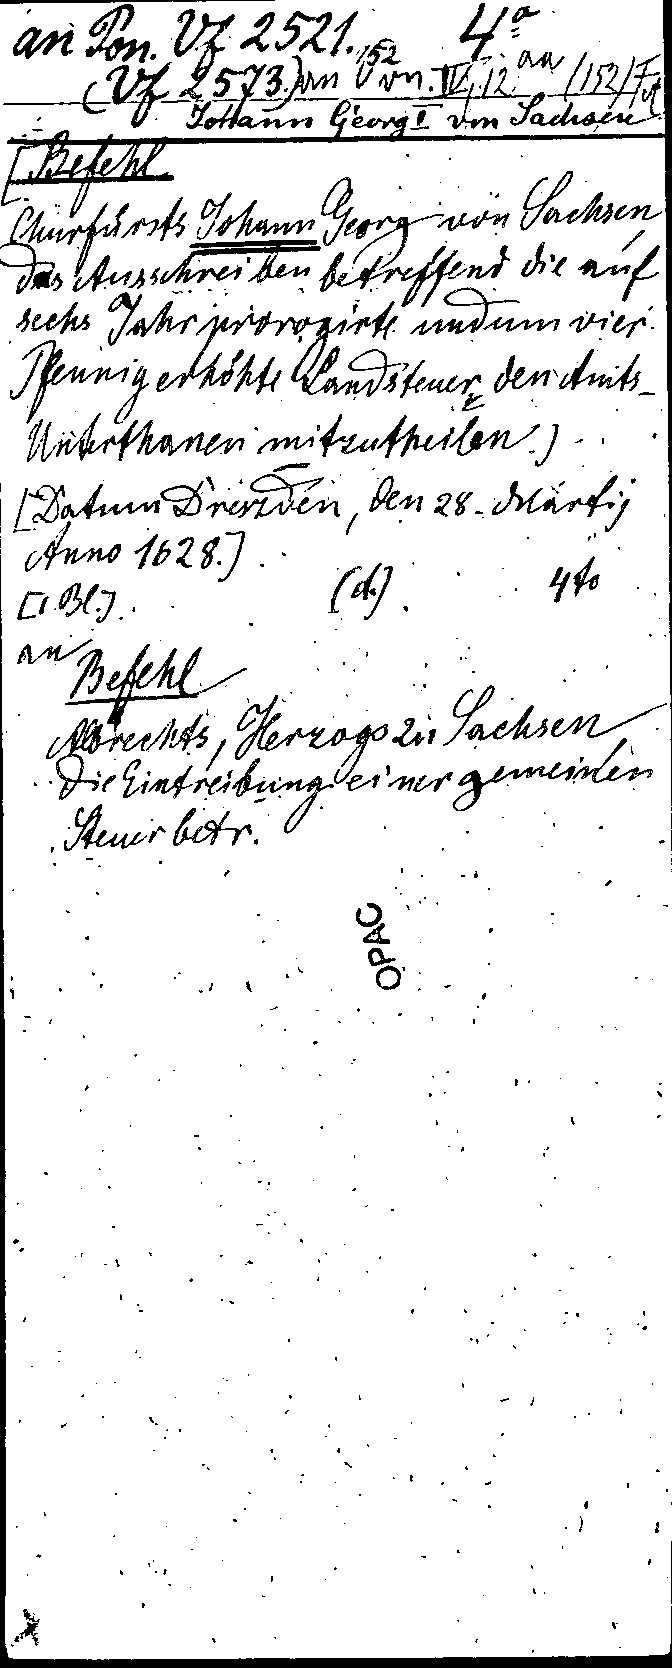 an Pon. Vf 2521. 4°
(Vf 2573.) an 152 IV, 12 aa (152) F
Johann Georg I von Sachsen
[Befehl
Churfürsts Johann Georg von Sachsen,
das Ausschreiben betreffend die auf
sechs Jahr prorogirte und um vier
Pfennig erhöhte Landsteuer den Amts-
Unterthanen mitzutheilen.]
[Datum Dreszden, den 28. Martij
Anno 1628.]
[1 Bl.] (d.) 4to
an
Befehl
Albrechts, Herzogs zu Sachsen
die Eintreibung einer gemeinen
Steuer betr.
OPAC